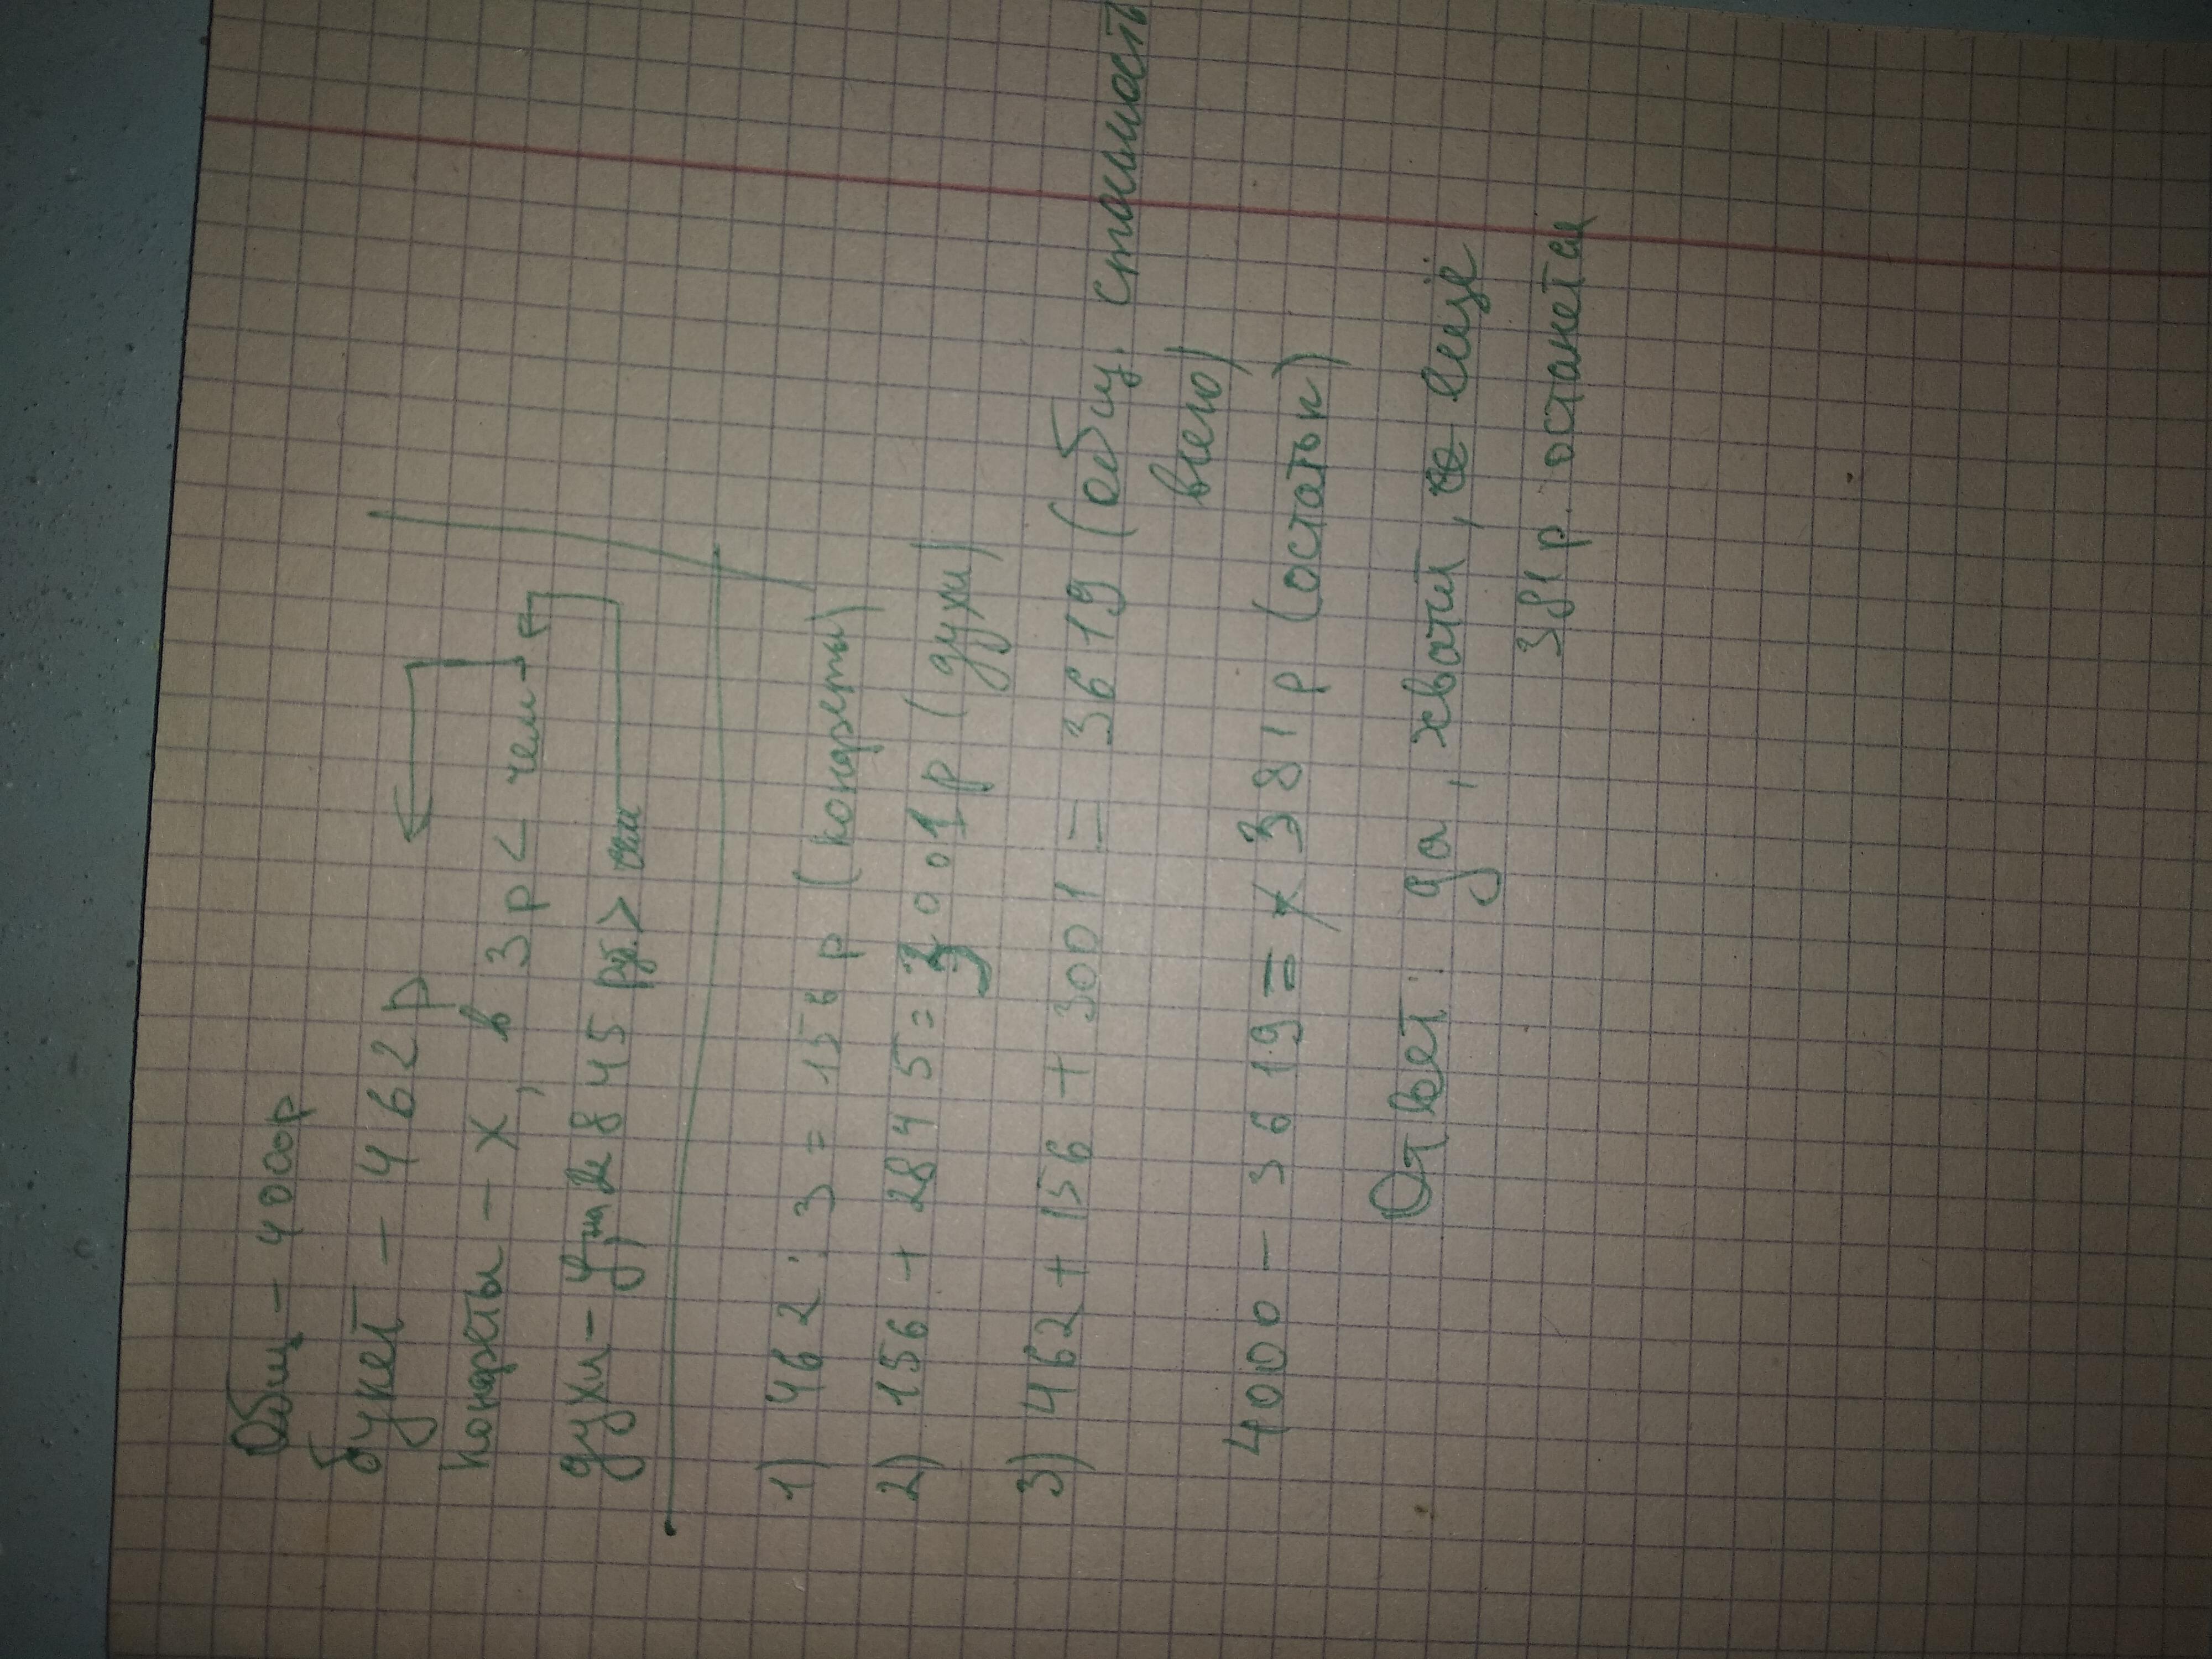 Общ. - 4000р
букет - 462 р
конфеты - х, в 3р < чем
духи - у, на 2845 руб. > чем
1) 462 : 3 = 156 р (конфеты)
2) 156 + 2845 = 3001р (духи)
3) 462 + 156 + 3001 = 3619 (общ. стоимость
всего)
4000 - 3619 = 381 р (остаток)
Ответ: да, хватит, еще
381 р. останется